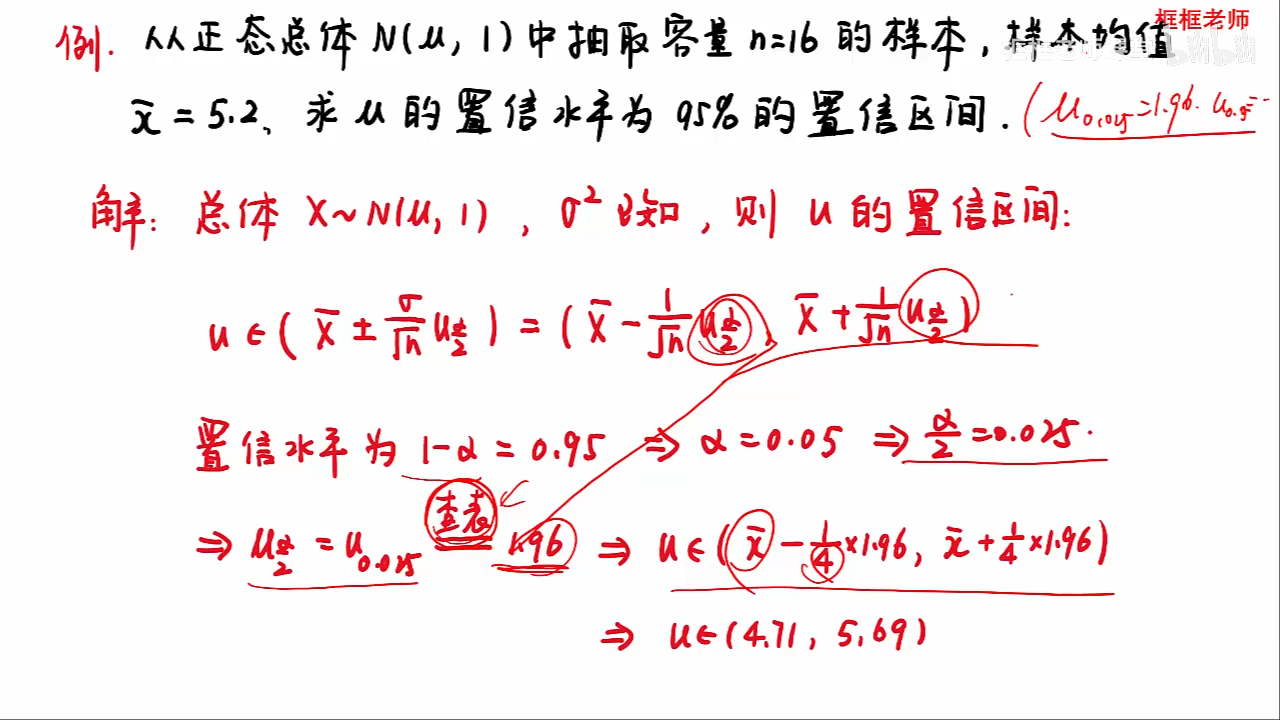 框框老师
例. 从正态总体 N(μ, 1) 中抽取容量 n=16 的样本, 样本均值
x̄ = 5.2、求 μ 的置信水平为 95% 的置信区间. (μ0.025=1.96.
解: 总体 X~N(μ, 1), σ² 已知, 则 μ 的置信区间:
u ∈ ( X̄ ± σ/√n u α/2 ) = ( X̄ − 1/√n u α/2, X̄ + 1/√n u α/2 )
置信水平为 1-α = 0.95 ⇒ α = 0.05 ⇒ α/2 = 0.025.
查表
⇒ μ α/2 = u 0.025 1.96 ⇒ u ∈ ( x̄ − 1/4 × 1.96, x̄ + 1/4 × 1.96 )
⇒ u ∈ (4.71, 5.69)